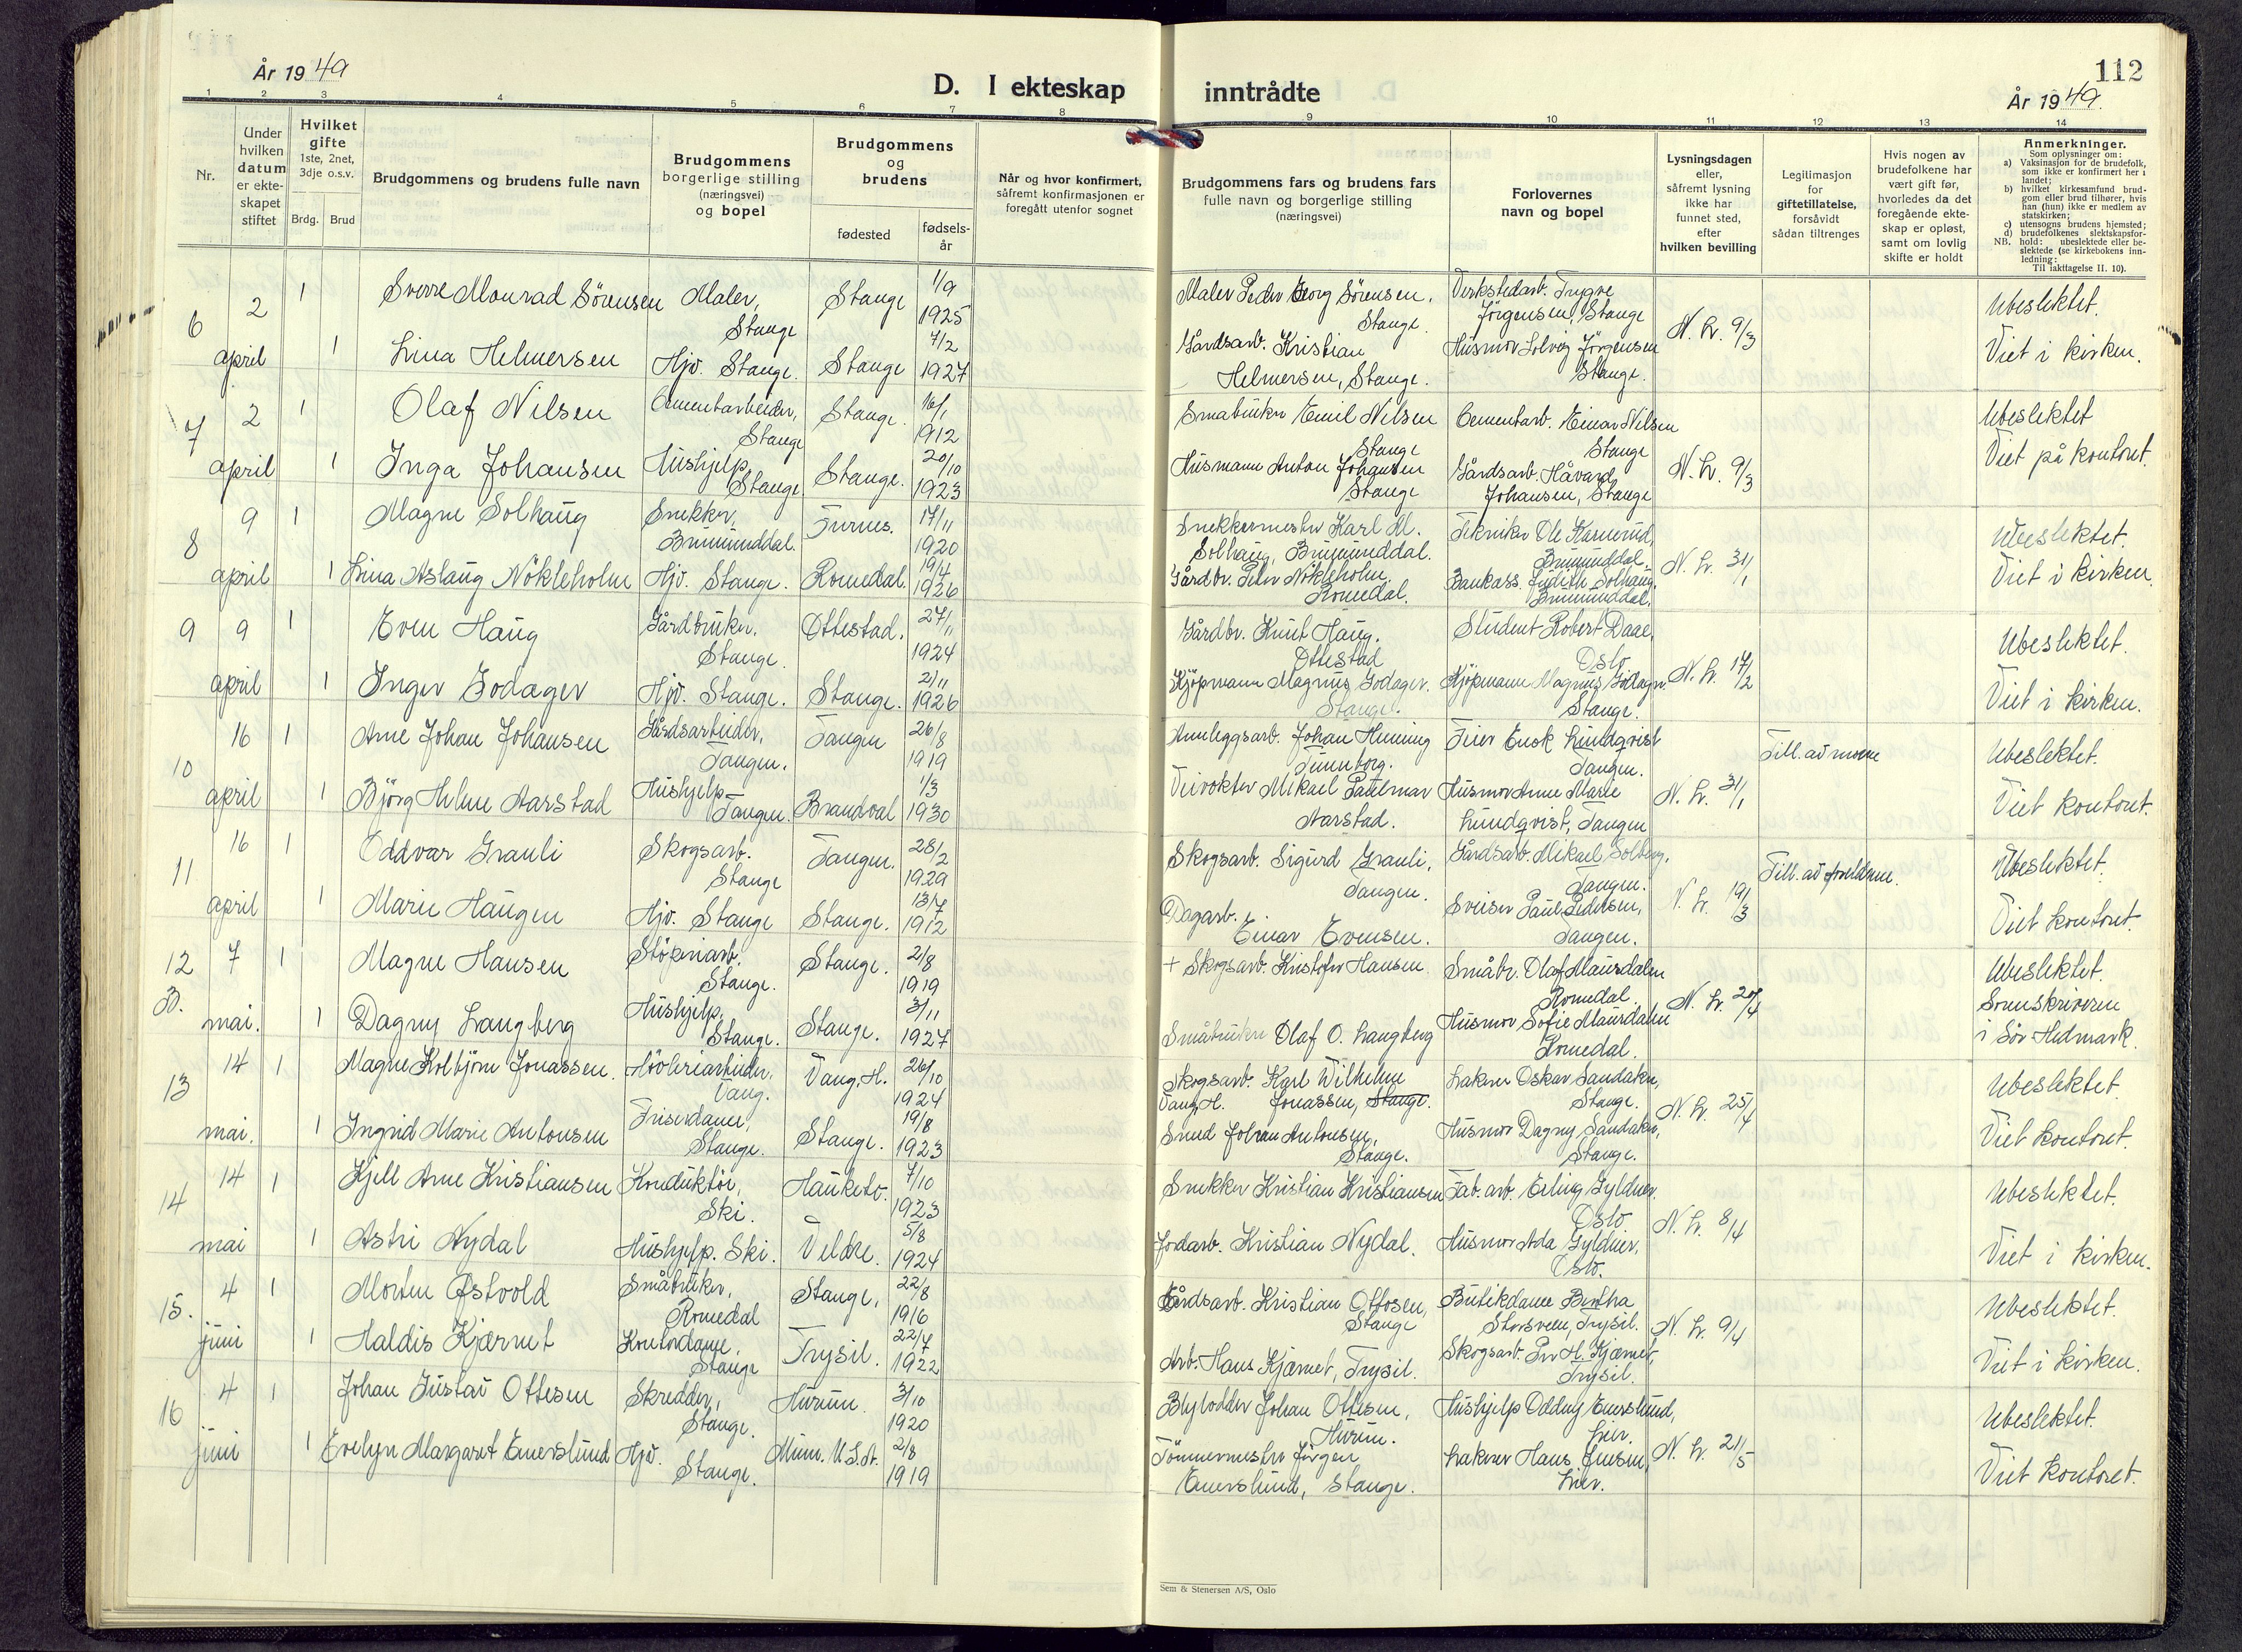 År 1949
D. I ekteskap
inntrådte
112
År 1949.
1 2 3 4 5 6 7 8 9 10 11 12 13 14
Nr.
Under
hvilken
datum
er ekte-
skapet
stiftet
Hvilket
gifte
1ste, 2net,
3dje o.s.v.
Brdg.
Brud
Brudgommens og brudens fulle navn
Brudgommens
borgerlige stilling
(næringsvei)
og bopel
Brudgommens
og
brudens
fødested
fødsels-
år
Når og hvor konfirmert,
såfremt konfirmasjonen er
foregått utenfor sognet
Brudgommens fars og brudens fars
fulle navn og borgerlige stilling
(næringsvei)
Forlovernes
navn og bopel
Lysningsdagen
eller,
såfremt lysning
ikke har
funnet sted,
efter
hvilken bevilling
Legitimasjon
for
giftetillatelse,
forsåvidt
sådan tiltrenges
Hvis nogen av
brudefolkene har
vært gift før,
hvorledes da det
foregående ekte-
skap er opløst,
samt om lovlig
skifte er holdt
Anmerkninger.
Som oplysninger om:
a) Vaksinasjon for de brudefolk,
som ikke er konfirmert her i
landet;
b) hvilket kirkesamfund brud-
gom eller brud tilhører, hvis
han (hun) ikke er medlem av
statskirken;
c) utensogns brudens hjemsted;
d) brudefolkenes slektskapsfor-
NB. hold: ubeslektede eller be-
slektede (se kirkebokens inn-
ledning:
Til iakttagelse II. 10).
6 2 april 1 Sverre Monrad Sörensen Maler, Stange Stange 1/9 1925 Maler Peder Georg Sörensen, Stange. Verkstedarb. Trygve Jörgensen, Stange N. Lr. 9/3 Ubeslektet.
1 Lina Helmersen Hjv. Stange. Stange 7/2 1927 Gårdsarb. Kristian Helmersen, Stange. Husmor Solveig Jörgensen Stange. Viet i kirken.
7 2 april 1 Olaf Nilsen Cementarbeider, Stange Stange. 16/1 1912 Småbruker Emil Nilsen Stange Cementarb. Einar Nilsen Stange N. Lr. 9/3 Ubeslektet
1 Inga Johansen Hushjelp, Stange Stange. 20/10 1923 Husmann Anton Johansen Stange Gårdsarb. Håvard Johansen, Stange Viet på kontoret.
8 9 april 1 Magne Solhaug Snekker, Brumunddal. Furnes. 17/11 1920 Snekkermester Karl M. Solhaug, Brumunddal. Tekniker Ole Kamerud, Brumunddal. N. Lr. 31/1 Ubeslektet.
1 Lina Aslaug Nökleholm Hjv. Stange. Romedal. 19/4 1926 Gårdbr. Peter Nökleholm, Romedal. Bankass. Judith Solhaug, Brumunddal. Viet i kirken.
9 9 april 1 Even Haug Gårdbruker, Stange. Ottestad. 27/11 1924 Gårdbr. Knut Haug. Ottestad Student Robert Daae, Oslo N. Lr. 17/2 Ubeslektet.
1 Inger Godager Hjv. Stange. Stange. 2/11 1926 Kjöpmann Magnus Godager. Stange. Kjöpmann Magnus Godager. Stange. Viet i kirken.
10 16 april 1 Arne Johan Johansen Gårdsarbeider, Tangen. Tangen 26/8 1919 Annleggsarb. Johan Henning Tunborg. Feier Enok Lundqvist Tangen. N. Lr. 31/1 Till. av moren Ubeslektet.
1 Björg Helene Aarstad Hushjelp Tangen. Brandval 1/3 1930 Veivokter Mikael Paulmar Aarstad. Husmor Anne Marie Lundqvist, Tangen Viet kontoret.
11 16 april 1 Oddvar Grauli Skogsarb. Stange Tangen. 28/2 1929 Skogsarb. Sigurd Grauli, Tangen. Gårdsarb. Mikael Solberg, Tangen. N. Lr. 19/3 Till. av foreldrene. Ubeslektet.
1 Marie Haugen Hjv. Stange Stange. 13/7 1912 Dagarb. Einar Evensen. Sveiser Paul Pedersen, Tangen. Viet kontoret.
12 B. 7 mai. 1 Magne Hansen Stöperiarb. Stange. Stange. 2/8 1919 + Skogsarb. Kristofer Hansen Småbr. Olaf Maursdalen Romedal. N. Lr. 20/4 Ubeslektet.
1 Dagny Langberg Hushjelp, Stange. Stange. 3/11 1927 Småbruker Olaf O. Langberg Husmor Sofie Maursdalen Romedal. Sorenskriveren i Sör-Hedmark.
13 14 mai. 1 Magne Kolbjörn Jonassen. Hövleriarbeider, Vang. Vang, H. 26/10 1924 Skogsarb. Karl Wilhelm Jonassen, Stange. Vang, H. Lakener Oskar Sandaker, Stange. N. Lr. 25/4 Ubeslektet.
1 Ingrid Marie Antonsen Friserdame, Stange. Stange. 19/8 1923 Smed Johan Antonsen, Stange. Husmor Dagny Sandaker, Stange. Viet kontoret.
14 14 mai 1 Kjell Arne Kristiansen Konduktör, Ski. Hauketo. 7/10 1923 Snekker Kristian Kristiansen Fab. arb. Erling Gyldner. Oslo N. Lr. 8/4 Ubeslektet.
1 Astri Nydal Hushjelp. Ski. Veldre. 5/8 1924 Jordarb. Kristian Nydal. Husmor Ada Gyldner, Oslo. Viet i kirken.
15. 4 juni 1 Morten Østvold Småbruker, Romedal Stange, 22/8 1916 Gårdsarb. Kristian Ottosen, Stange Butikdame Bertha Storsveen, Trysil. N. Lr. 9/4 Ubeslektet.
1 Haldis Kjærnet Kontordame, Stange Trysil. 22/7 1922 Arb. Hans Kjærnet, Trysil. Skogsarb. Per H. Kjærnet, Trysil. Viet i kirken.
16 4 juni 1 Johan Gustav Ottesen Skredder, Stange. Hurum. 3/10 1920 Blylodder Johan Ottesen, Hurum. Hushjelp Oddny Emerslund, Lier. N. Lr. 21/5 Ubeslektet.
1 Evelyn Margaret Emerslund Hjv. Stange. Minn. U.S.A. 2/8 1919 Tömmermester Jörgen Emerslund, Stange. Lakener Hans Jensen, Lier. Viet kontoret.
Sem & Stenersen A/S, Oslo